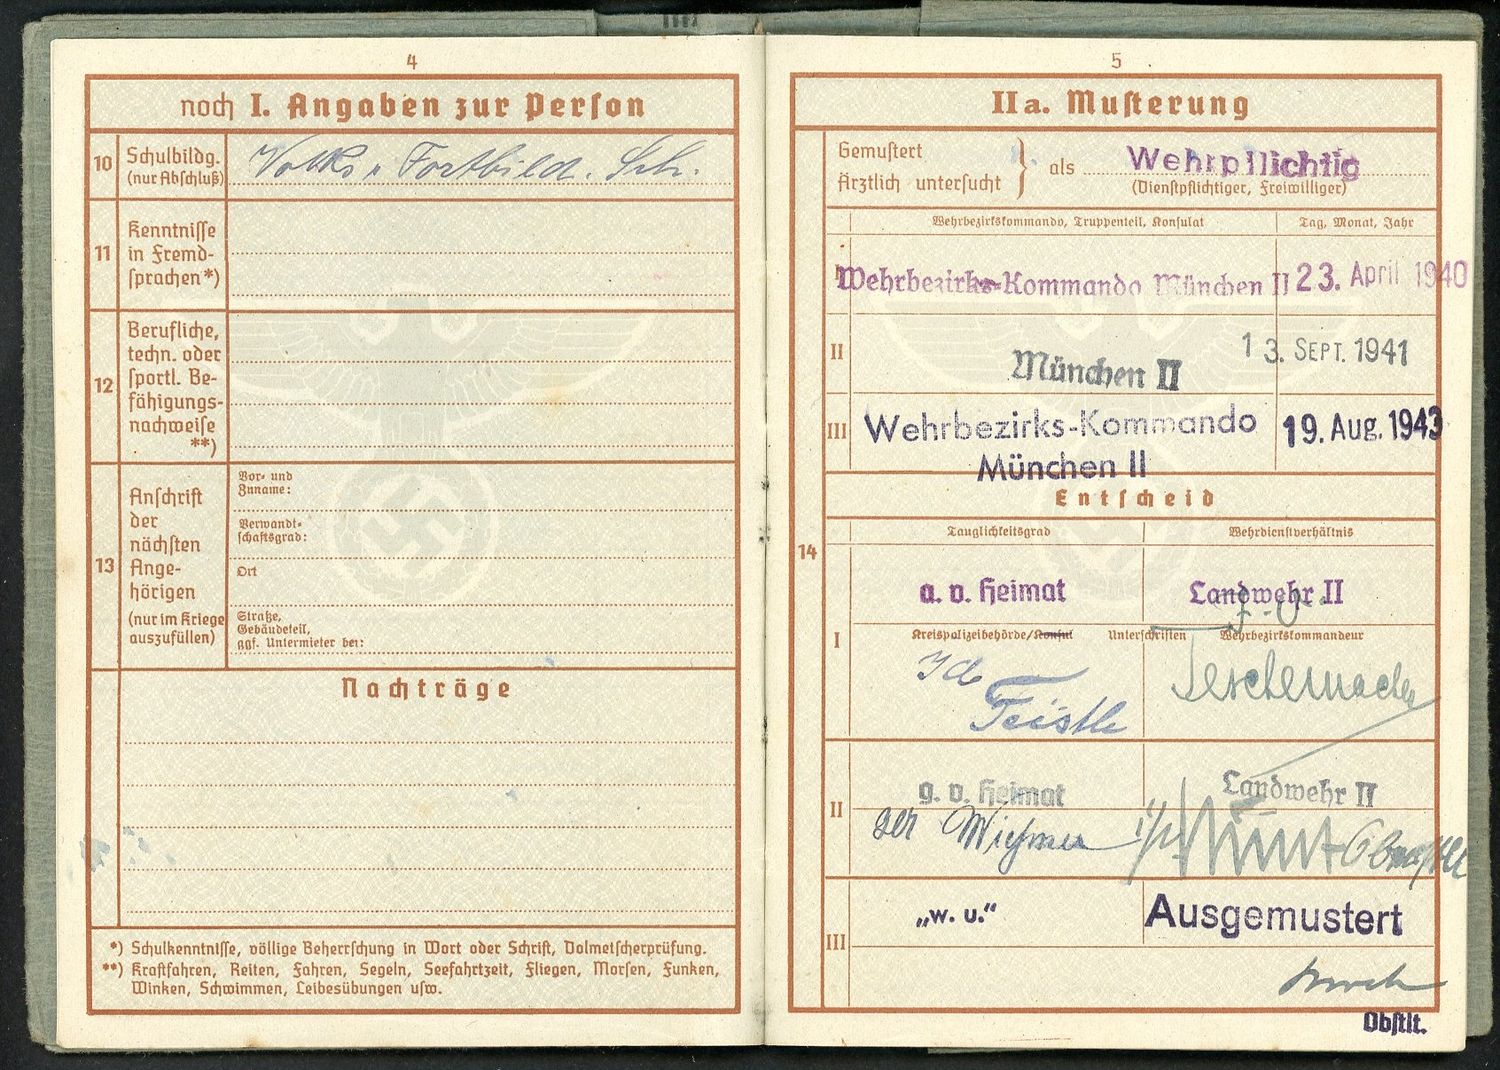 4
noch I. Angaben zur Person
10
Schulbildg.
(nur Abschluß)
Volks u Fortbild. Sch.
11
Kenntnisse
in Fremd-
sprachen*)
12
Berufliche,
techn. oder
sportl. Be-
fähigungs-
nachweise
**)
13
Anschrift
der
nächsten
Ange-
hörigen
(nur im Kriege
auszufüllen)
Vor- und
Zuname:
Verwandt-
schaftsgrad:
Ort
Straße,
Gebäudeteil,
ggf. Untermieter bei:
Nachträge
*) Schulkenntnisse, völlige Beherrschung in Wort oder Schrift, Dolmetscherprüfung.
**) Kraftfahren, Reiten, Fahren, Segeln, Seefahrtzeit, Fliegen, Morsen, Funken,
Winken, Schwimmen, Leibesübungen usw.
5
IIa. Musterung
Gemustert
Ärztlich untersucht
als
Wehrpflichtig
(Dienstpflichtiger, Freiwilliger)
Wehrbezirkskommando, Truppenteil, Konsulat
Tag, Monat, Jahr
Wehrbezirks-Kommando München II
23. April 1940
II
München II
13. SEPT. 1941
III
Wehrbezirks-Kommando
München II
19. Aug. 1943
Entscheid
14
Tauglichkeitsgrad
Wehrdienstverhältnis
a. v. Heimat
Landwehr II
I
Kreispolizeibehörde/Konsul
Unterschriften
Wehrbezirkskommandeur
II
g. v. Heimat
Landwehr II
III
„w. u.“
Ausgemustert
Obstlt.